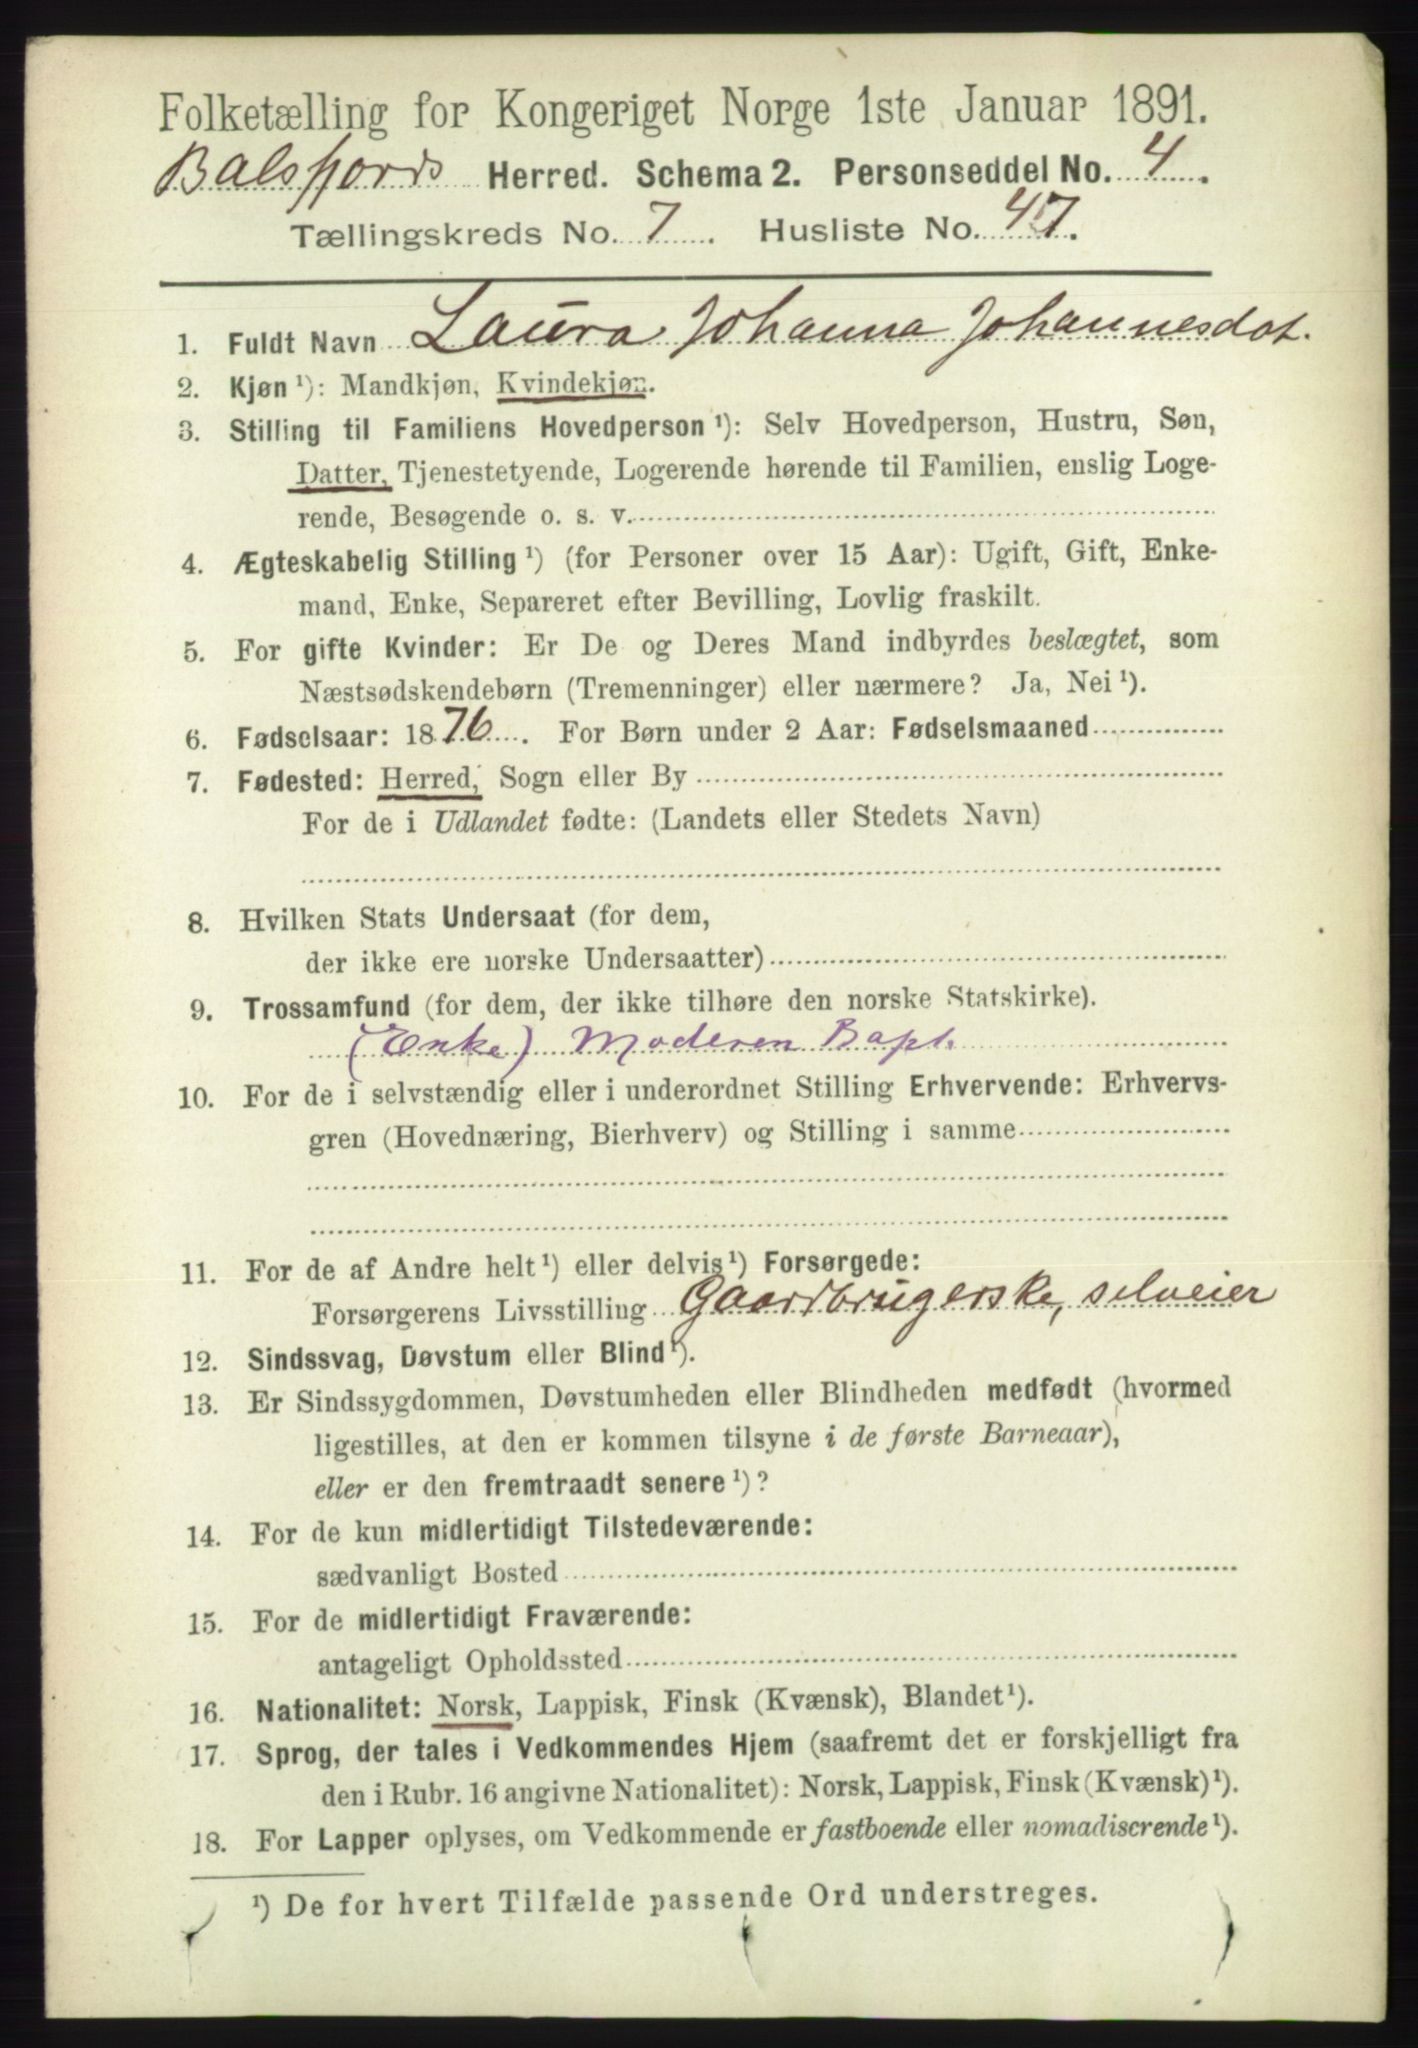 Folketælling for Kongeriget Norge 1ste Januar 1891.
Balsfjords Herred. Schema 2. Personseddel No. 4.
Tællingskreds No. 7. Husliste No. 47.
1. Fuldt Navn Laura Johanna Johannesdat.
2. Kjøn ¹): Mandkjøn, Kvindekjøn.
3. Stilling til Familiens Hovedperson ¹): Selv Hovedperson, Hustru, Søn,
Datter, Tjenestetyende, Logerende hørende til Familien, enslig Loge-
rende, Besøgende o. s. v.
4. Ægteskabelig Stilling ¹) (for Personer over 15 Aar): Ugift, Gift, Enke-
mand, Enke, Separeret efter Bevilling, Lovlig fraskilt.
5. For gifte Kvinder: Er De og Deres Mand indbyrdes beslægtet, som
Næstsødskendebørn (Tremenninger) eller nærmere? Ja, Nei ¹).
6. Fødselsaar: 1876. For Børn under 2 Aar: Fødselsmaaned
7. Fødested: Herred, Sogn eller By
For de i Udlandet fødte: (Landets eller Stedets Navn)
8. Hvilken Stats Undersaat (for dem,
der ikke ere norske Undersaatter)
9. Trossamfund (for dem, der ikke tilhøre den norske Statskirke).
(Enke) Moderen Bapt.
10. For de i selvstændig eller i underordnet Stilling Erhvervende: Erhvervs-
gren (Hovednæring, Bierhverv) og Stilling i samme
11. For de af Andre helt ¹) eller delvis ¹) Forsørgede:
Forsørgerens Livsstilling Gaardbrugerske, selveier
12. Sindssvag, Døvstum eller Blind ¹).
13. Er Sindssygdommen, Døvstumheden eller Blindheden medfødt (hvormed
ligestilles, at den er kommen tilsyne i de første Barneaar),
eller er den fremtraadt senere ¹)?
14. For de kun midlertidigt Tilstedeværende:
sædvanligt Bosted
15. For de midlertidigt Fraværende:
antageligt Opholdssted
16. Nationalitet: Norsk, Lappisk, Finsk (Kvænsk), Blandet ¹).
17. Sprog, der tales i Vedkommendes Hjem (saafremt det er forskjelligt fra
den i Rubr. 16 angivne Nationalitet): Norsk, Lappisk, Finsk (Kvænsk) ¹).
18. For Lapper oplyses, om Vedkommende er fastboende eller nomadiserende ¹).
¹) De for hvert Tilfælde passende Ord understreges.